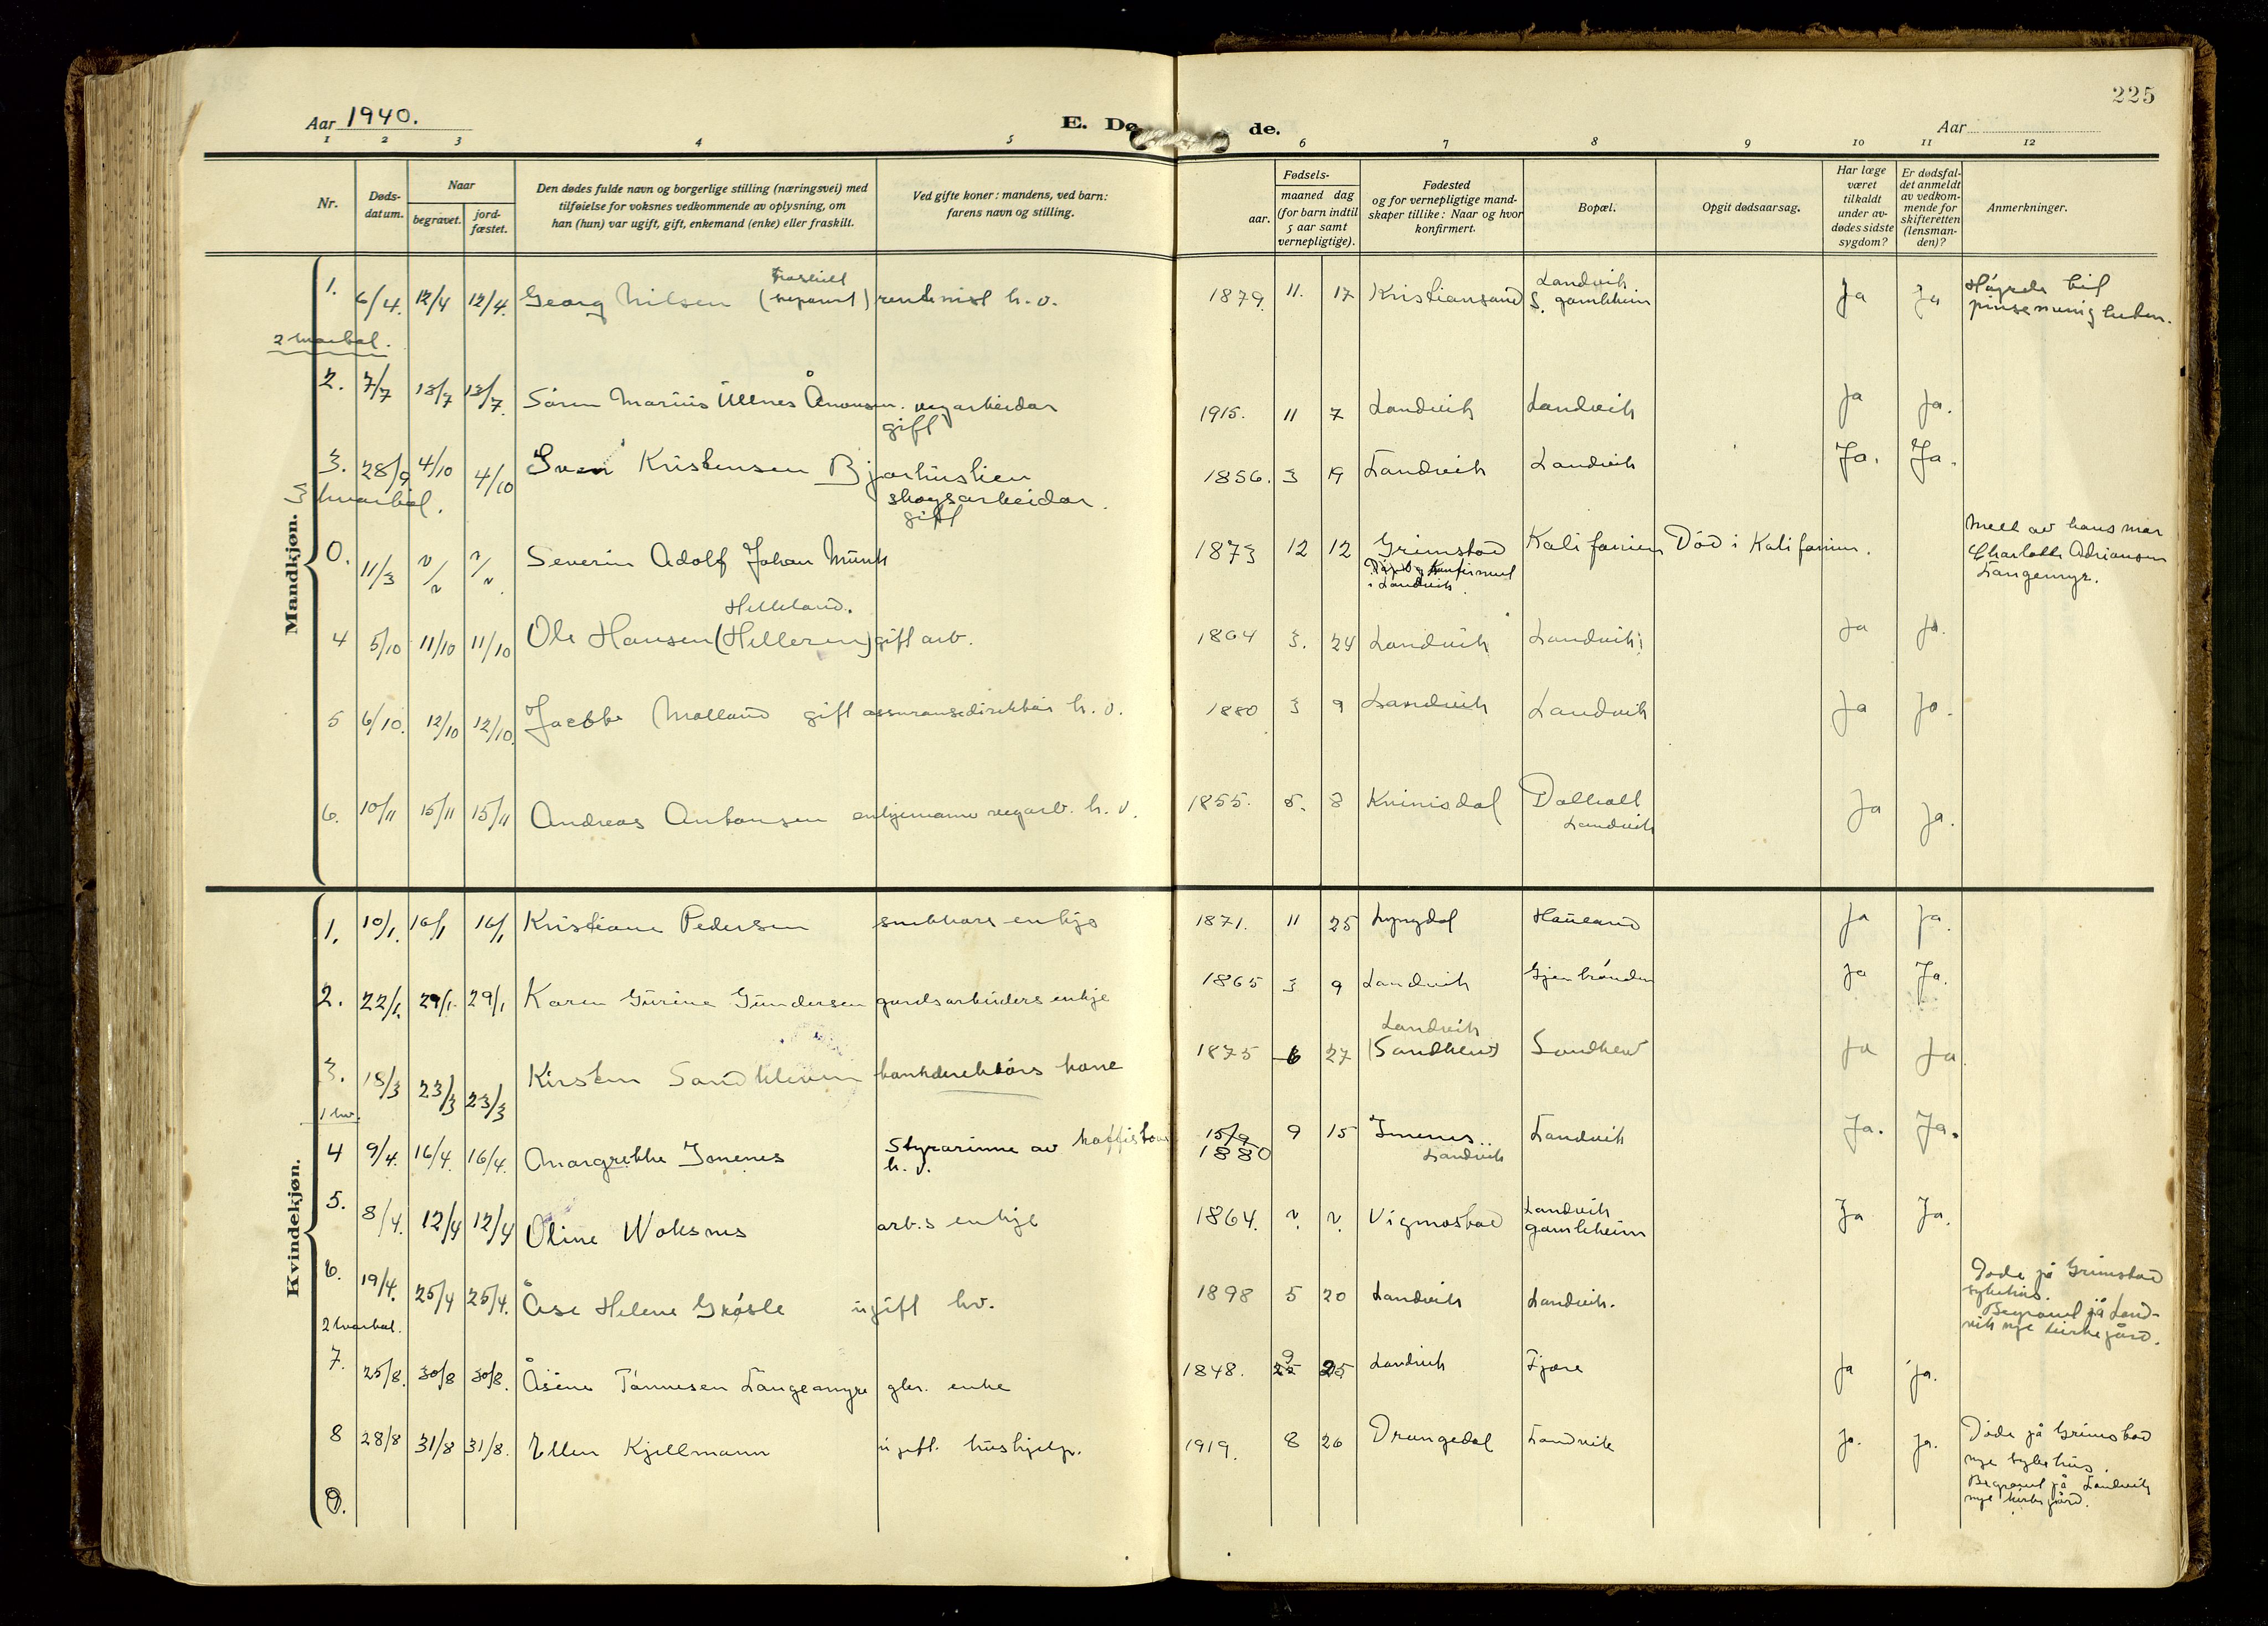 225
Aar 1940. E. Dø de. Aar
1 2 3 4 5 6 7 8 9 10 11 12
Nr. Døds-datum. Naar begravet. jord-fæstet. Den dødes fulde navn og borgerlige stilling (næringsvei) med tilføielse for voksnes vedkommende av oplysning, om han (hun) var ugift, gift, enkemand (enke) eller fraskilt. Ved gifte koner: mandens, ved barn: farens navn og stilling. Fødsels- aar. maaned dag (for barn indtil 5 aar samt vernepligtige). Fødested og for vernepligtige mand-skaper tillike: Naar og hvor konfirmert. Bopæl. Opgit dødsaarsag. Har læge været tilkaldt under av-dødes sidste sygdom? Er dødsfal-det anmeldt av vedkom-mende for skifteretten (lensman-den)? Anmerkninger.
Mandkjøn.
1. 6/4. 12/4 12/4. Georg Nilsen (fraskilt separert) rentenist h.v. 1879. 11. 17 Kristiansand Landvik S. gamleheim Ja Ja Høyrde til pinsemenigheten.
2 kvartal.
2. 7/7 13/7 13/7. Sören Marius Ullnes Ånonsen. vegarbeidar gift 1915. 11 7 Landvik Landvik Ja Ja.
3. 28/9 4/10 4/10 Sven Kristensen Bjorhuslien skogsarbeidar. gift 1856. 3 19 Landvik Landvik Ja. Ja.
3 kvartal.
0. 11/3 Severin Adolf Johan Munk 1873 12 12 Grimstad Döpt og konfirmert i Landvik. Kalifornien Död i Kalifornien. Meld av hans mor Charlotte Adriansen Langemyr.
4 5/10 11/10 11/10 Ole Hansen (Helleren) Helleland. gift arb. 1864 3. 24 Landvik Landvik Ja Ja.
5 6/10. 12/10 12/10. Jacobbe Molland gift assuransedirektör h.v. 1880 3 9 Landvik Landvik Ja Ja.
6. 10/11 15/11 15/11 Andreas Antonsen enkjemann vegarb. h.v. 1855. 5. 8 Kvinisdal Dalholt Landvik Ja Ja.
Kvindekjøn.
1. 10/1. 16/1 16/1 Kristiane Pedersen snekkars enkje 1871. 11 25 Lyngdal Hauland Ja Ja.
2. 22/1. 29/1. 29/1 Karen Gurine Gundersen gardsarbeiders enkje 1865 3 9 Landvik Gjenbrønden Ja Ja.
3. 18/3 23/3 23/3 Kirsten Sandkleven bankdirektörs kone 1875 6 27 Landvik (Sandklev) Sandklev Ja Ja.
1 kv.
4 9/4. 16/4. 16/4. Margrethe Imenes Styrarinne av kaffistova h.v. 15/9 1880 9 15 Imenes.. Landvik Landvik Ja. Ja.
5. 8/4. 12/4 12/4 Oline Woksnes arb.s enkje 1864. Vigmostad Landvik gamleheim Ja Ja.
6. 19/4. 25/4 25/4. Åse Helene Grøsle ugift hv. 1898 5 20 Landvik Landvik. Döde på Grimstad sykehus. Begravet på Land-vik nye kirkegård.
2 kvartal.
7. 25/8. 30/8 30/8. Åsine Tönnesen Langemyr gbr. enke 1848. 9 25 Landvik Fjære Ja Ja.
8 28/8 31/8 31/8. Ellen Kjellmann ugift. hushjelp. 1919. 8 26 Drangedal Landvik Ja. Ja. Döde på Grimstad nye sykehus. Begravet på Landvik nye kirkegård.
9.